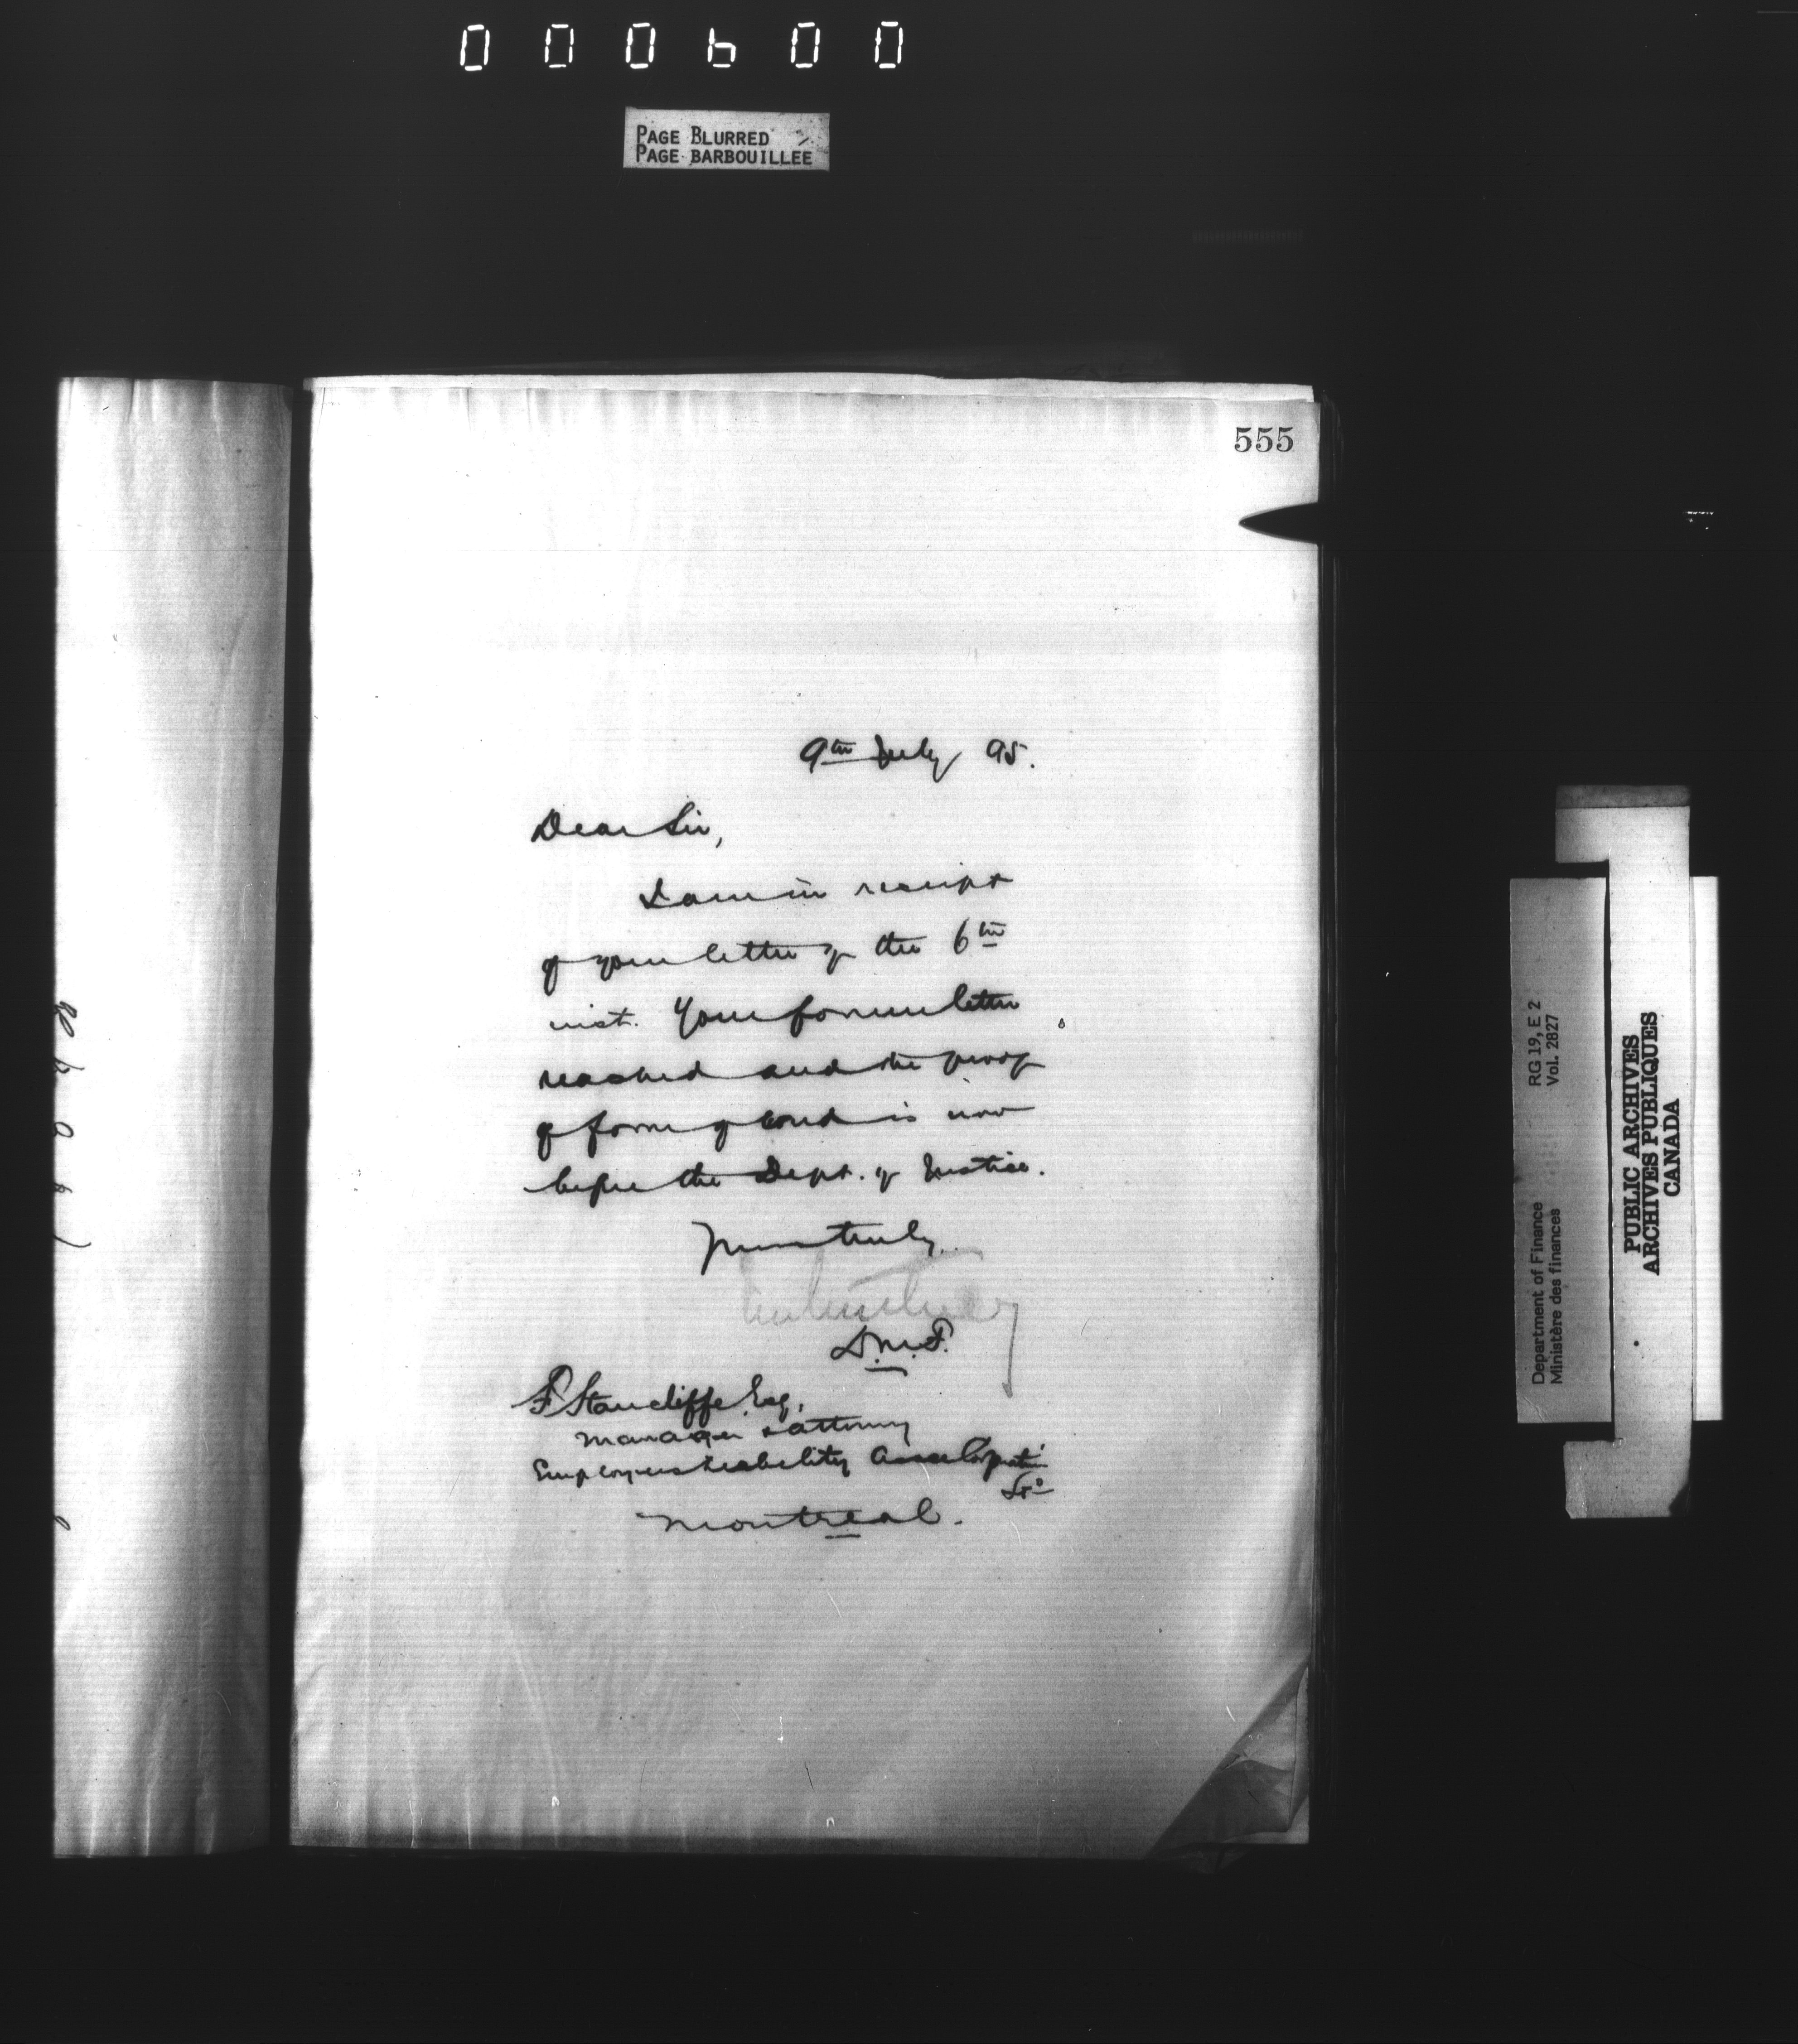 000600
PAGE BLURRED
PAGE BARBOUILLEE
555
9th July 95.
Dear Sir,
I am in receipt
of your letter of the 6th
inst. Your former letter
reached and the proof
of form of bond is now
before the Dept. of Justice.
Yours truly
D.M.F.
F Stancliffe Esq,
Manager & Attorney
Employers Liability Assce Corporation
Ld
Montreal.
RG 19, E 2
Vol. 2827
Department of Finance
Ministère des finances
PUBLIC ARCHIVES
ARCHIVES PUBLIQUES
CANADA